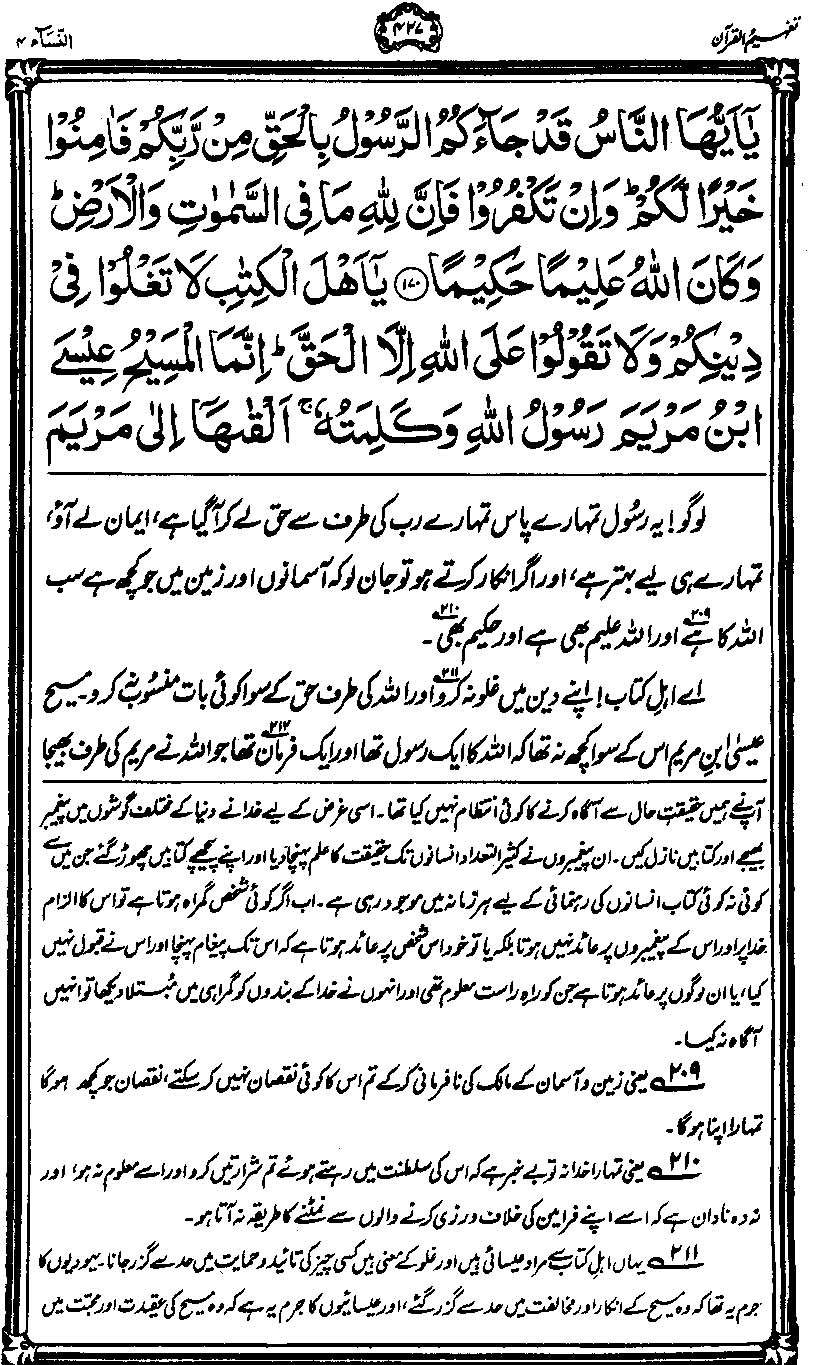 تفہیم القرآن
۴۲۷
النساء ۴
يٰۤاَيُّهَا النَّاسُ قَدْ جَآءَكُمُ الرَّسُوْلُ بِالْحَقِّ مِنْ رَّبِّكُمْ فَاٰمِنُوْا
خَيْرًا لَّكُمْ ؕ وَاِنْ تَكْفُرُوْا فَاِنَّ لِلّٰهِ مَا فِى السَّمٰوٰتِ وَالْاَرْضِ ؕ
وَكَانَ اللّٰهُ عَلِيْمًا حَكِيْمًا ﴿۱۷۰﴾ يٰۤاَهْلَ الْكِتٰبِ لَا تَغْلُوْا فِىْ
دِيْنِكُمْ وَلَا تَقُوْلُوْا عَلَى اللّٰهِ اِلَّا الْحَقَّ ؕ اِنَّمَا الْمَسِيْحُ عِيْسَى
ابْنُ مَرْيَمَ رَسُوْلُ اللّٰهِ وَكَلِمَتُهٗ ۚ اَلْقٰىهَاۤ اِلٰى مَرْيَمَ
لوگو! یہ رسُول تمہارے پاس تمہارے رب کی طرف سے حق لے کر آگیا ہے، ایمان لے آؤ،
تمہارے ہی لیے بہتر ہے، اور اگر انکار کرتے ہو تو جان لو کہ آسمانوں اور زمین میں جو کچھ ہے سب
اللہ کا ہے۲۰۹ اور اللہ علیم بھی ہے اور حکیم بھی۲۱۰۔
اے اہلِ کتاب! اپنے دین میں غلو نہ کرو۲۱۱ اور اللہ کی طرف حق کے سوا کوئی بات منسُوب نہ کرو۔ مسیح
عیسیٰ ابنِ مریم اس کے سوا کچھ نہ تھا کہ اللہ کا ایک رسول تھا اور ایک فرمان تھا۲۱۲ جو اللہ نے مریم کی طرف بھیجا
آپ نے ہمیں حقیقتِ حال سے آگاہ کرنے کا کوئی انتظام نہیں کیا تھا۔ اسی غرض کے لیے خدا نے دنیا کے مختلف گوشوں میں پیغمبر
بھیجے اور کتابیں نازل کیں۔ ان پیغمبروں نے کثیر التعداد انسانوں تک حقیقت کا علم پہنچا دیا اور اپنے پیچھے کتابیں چھوڑ گئے جن میں سے
کوئی نہ کوئی کتاب انسانوں کی رہنمائی کے لیے ہر زمانہ میں موجود رہی ہے۔ اب اگر کوئی شخص گمراہ ہوتا ہے تو اس کا الزام
خدا پر اور اس کے پیغمبروں پر عائد نہیں ہوتا بلکہ یا تو خود اس شخص پر عائد ہوتا ہے کہ اس تک پیغام پہنچا اور اس نے قبول نہیں
کیا، یا ان لوگوں پر عائد ہوتا ہے جن کو راہِ راست معلوم تھی اور انہوں نے خدا کے بندوں کو گمراہی میں مُبتلا دیکھا تو انہیں
آگاہ نہ کیا۔
۲۰۹ یعنی زمین و آسمان کے مالک کی نافرمانی کر کے تم اس کا کوئی نقصان نہیں کر سکتے، نقصان جو کچھ ہوگا
تمہارا اپنا ہوگا۔
۲۱۰ یعنی تمہارا خدا نہ تو بے خبر ہے کہ اس کی سلطنت میں رہتے ہوئے تم شرارتیں کرو اور اسے معلوم نہ ہو، اور
نہ وہ نادان ہے کہ اسے اپنے فرامین کی خلاف ورزی کرنے والوں سے نمٹنے کا طریقہ نہ آتا ہو۔
۲۱۱ یہاں اہلِ کتاب سے مراد عیسائی ہیں اور غلو کے معنی ہیں کسی چیز کی تائید و حمایت میں حد سے گزر جانا۔ یہودیوں کا
جرم یہ تھا کہ وہ مسیح کے انکار اور مخالفت میں حد سے گزر گئے، اور عیسائیوں کا جرم یہ ہے کہ وہ مسیح کی عقیدت اور محبت میں